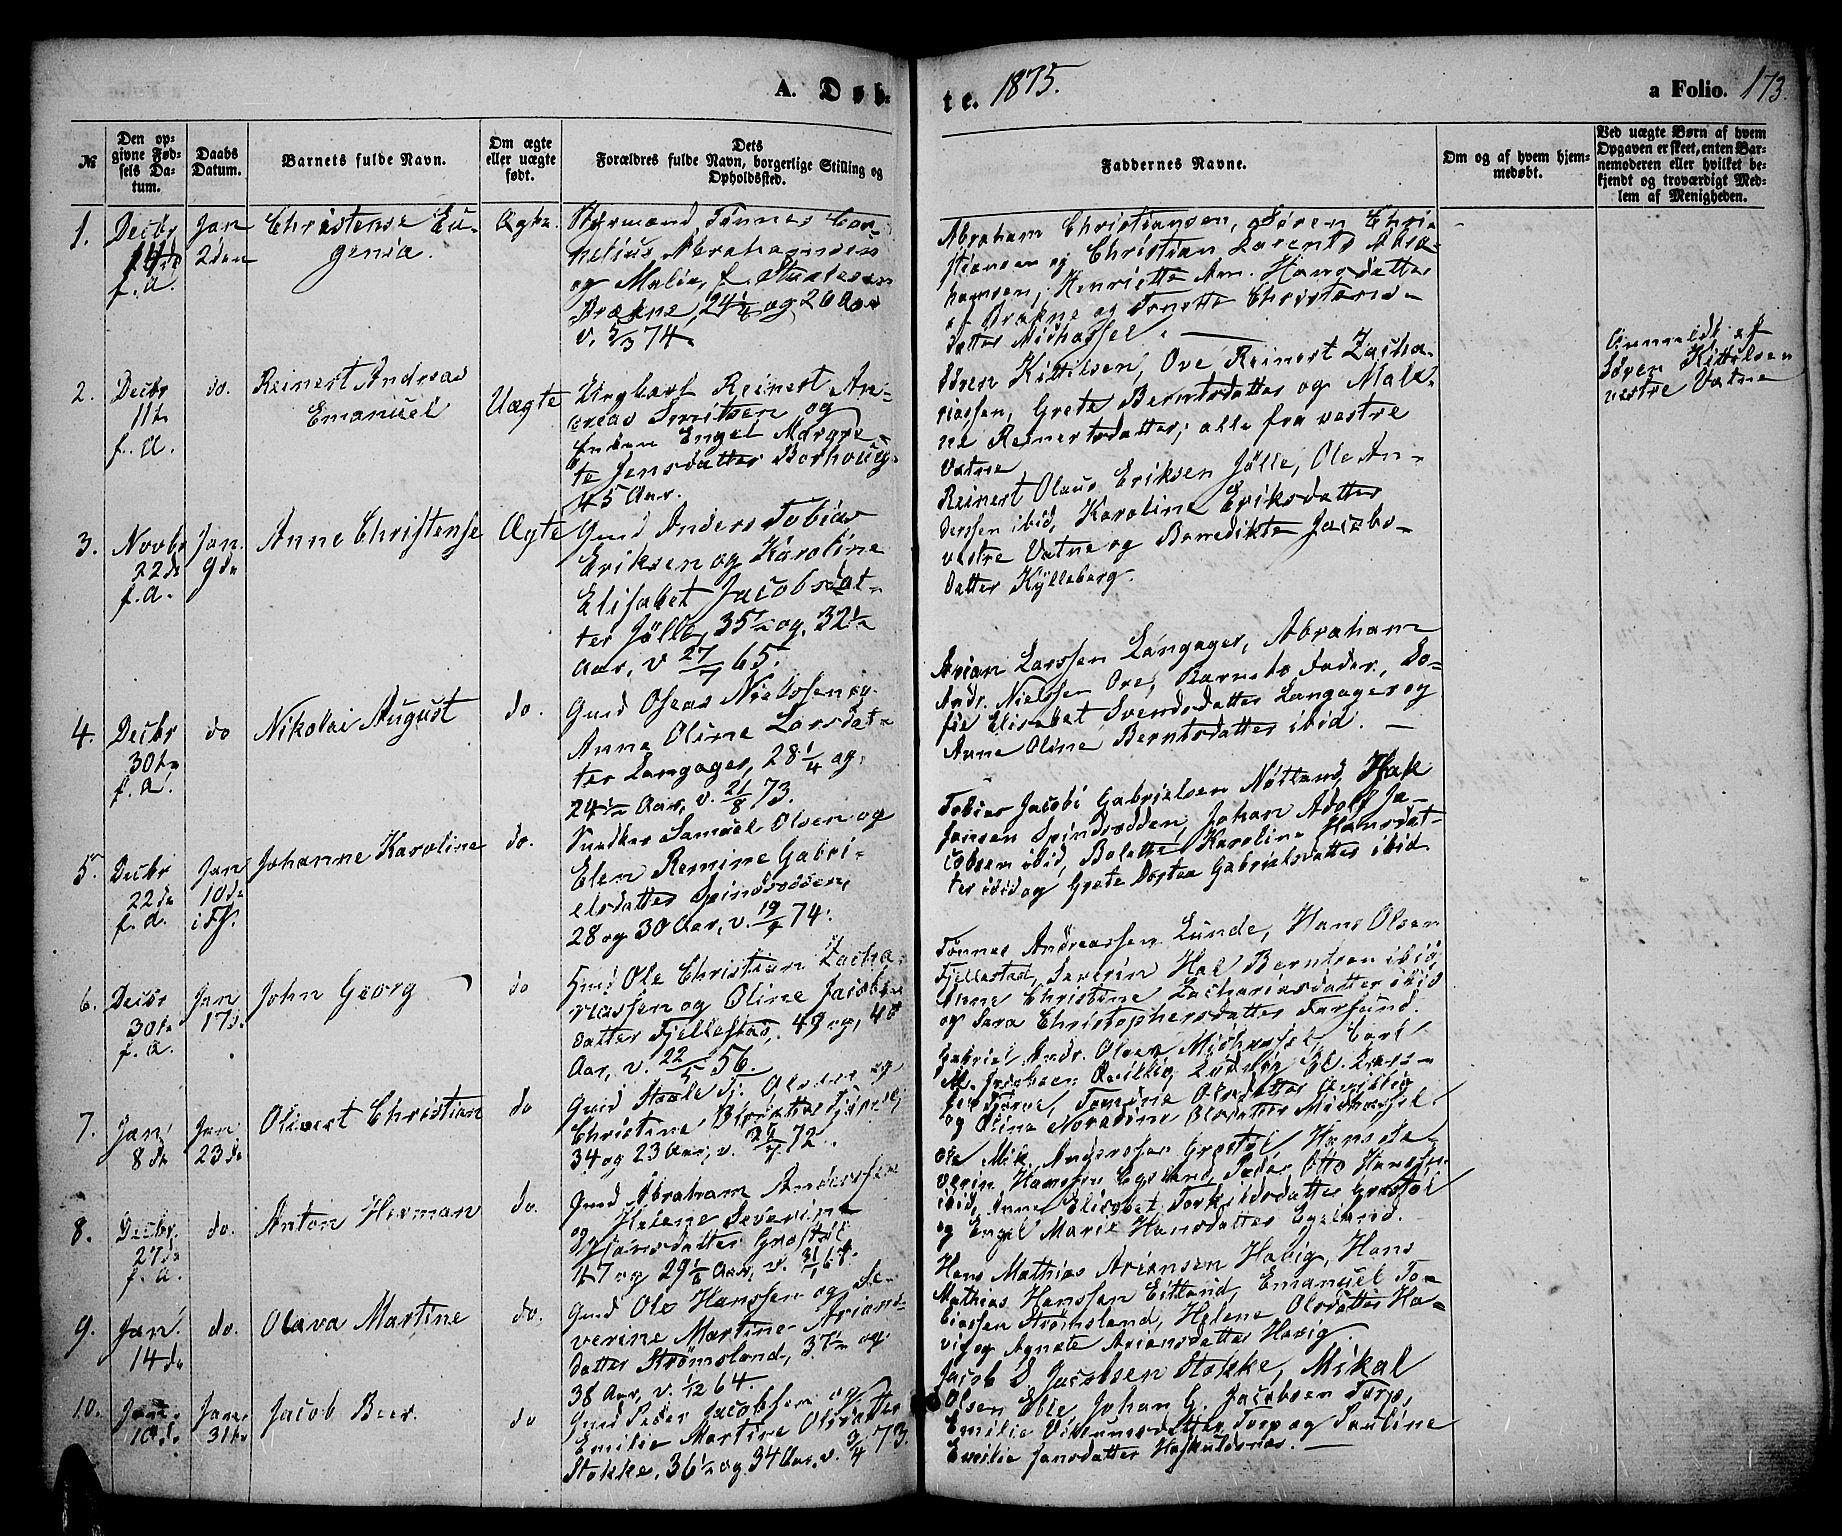 A. Døb-
te. 1875.
a Folio. 173.
№
Den op-
givne Fød-
sels Da-
tum.
Daabs
Datum.
Barnets fulde Navn.
Om ægte
eller uægte
født.
Dets
Forældres fulde Navn, borgerlige Stilling og
Opholdssted.
Faddernes Navne.
Om og af hvem hjem-
medøbt.
Ved uægte Børn af hvem
Opgaven er skeet, enten Bar-
nemoderen eller hvilket be-
kjendt og troværdigt Med-
lem af Menigheden.
1.
Decbr
f. a.
Jan
2den
Christense Eu-
genia.
Ægte.
Styrmand Tønnes Cor-
nelius Abrahamsen
og Malie, f. Staalesen
24¼ og 26 Aar
v. 5/3 74.
Abraham Christiansen, Søren Chri-
stiansen og Christian Lorents Abra-
hamsen, Henriette Am. Hansdatter
og Tonette Christens-
datter Midhassel.
2.
Decbr
11te
f. a.
do.
Reinert Andreas
Emanuel
Uægte
Ungkarl Reinert An-
dreas Smitsen og
Enken Engel Margre-
te Jensdatter Borhoug
45 Aar.
Søren Kittilsen, Ove Reinert Zacha-
riassen, Grete Berntsdatter og Male-
ne Reinertsdatter, alle fra vestre
Vatne
Anmeldt af
Søren Kittelsen
vestre Vatne
3.
Novbr
22de
f. a.
Jan.
9de
Anne Christense
Ægte
Gmd Anders Tobias
Eriksen og Karoline
Elisabet Jacobsdat-
ter Jølle, 35½ og 32½
Aar, v. 27/7 65.
Reinert Olaus Eriksen Jølle, Ole An-
dersen ibid, Karoline Eriksdatter
vestre Vatne og Benedikte Jacobs-
datter Kylleberg.
4.
Decbr
30te
f. a.
do
Nikolai August
do.
Gmd Oseas Nielssen og
Anne Oline Larsdat-
ter Langager, 28¼ og
24½ Aar, v. 21/8 73.
Arian Larssen Langager, Abraham
Andr. Nielssen Ore, Barnets Fader, So-
fie Elisabet Svendsdatter Langager og
Anne Oline Berntsdatter ibid. —
5.
Decbr
22de
f. a.
Jan
10de
Johanne Karoline
do.
Samuel Olsen og
Elen Remine Gabri-
elsdatter Spindsodden,
28 og 30 Aar, v. 19/9 74.
Tobias Jacobi Gabrielsen Nøtland, Isak
Jansen Spindsodden, Johan Adolf Ja-
cobsen ibid, Bolette Karoline Hansdat-
ter ibid og Grete Dortea Gabrielsdatter ibid
6.
Decbr
30te
f. a.
Jan
17de
John Georg
do
Gmd Ole Christian Zacha-
riassen og Oline Jacobs-
datter Fjellestad, 49 og 48
Aar, v. 22/5 56.
Tønnes Andreassen Lunde, Hans Olsen
Fjellestad, Severin Hal Berntsen ibid,
Anne Christine Zachariasdatter ibid
og Sara Christophersdatter Farsund.
7.
Jan
8de
Jan
23de
Olivert Christian
do
Gmd Staale Tj. Olsen og
Christine
34 og 23 Aar, v. 72.
Gabriel Andr. Olsen Midhassel, Carl
M. Jacobsen Qvilljo, Ludvig
Tomine Olsdatter
og Olina Noradine Midhassel
8.
Decbr.
27de
f. a.
do.
Anton Herman
do.
Gmd Abraham Anderssen
og Helene Severine
Grøstøl
47 og 29⅙ Aar, v. 31/1 64.
Ole Mik. Anderssen Grøstøl, Hans Se-
verin Hanssen Egeland, Peder Otto Hanssen
ibid, Anne Elisabet Torkildsdatter Grøstøl
og Engel Marie Hansdatter Egeland.
9.
Jan
14de
do.
Olava Martine
do.
Gmd Ole Hanssen og Se-
verine Martine Arians-
datter Strømsland, 37½ og
38 Aar, v. 1/12 64.
Hans Mathias Ariansen Havig, Hans
Mathias Hanssen Eitland, Emanuel To-
biassen Strømsland, Helene Olsdatter Ha-
vig og Agnete Ariansdatter Havig.
10.
Jan.
10de
Jan.
31te
Jacob Beer.
do
Gmd Peder Jacobsen og
Emilie Martine Olsdatter
Stokke, 36½ og 34 Aar, v. 3/4 73.
Jacob S Jacobsen Stokke, Mikal
Olsen Elle, Johan G. Jacobsen Torp,
Emilie Torp og Pauline
Emilie Jansdatter